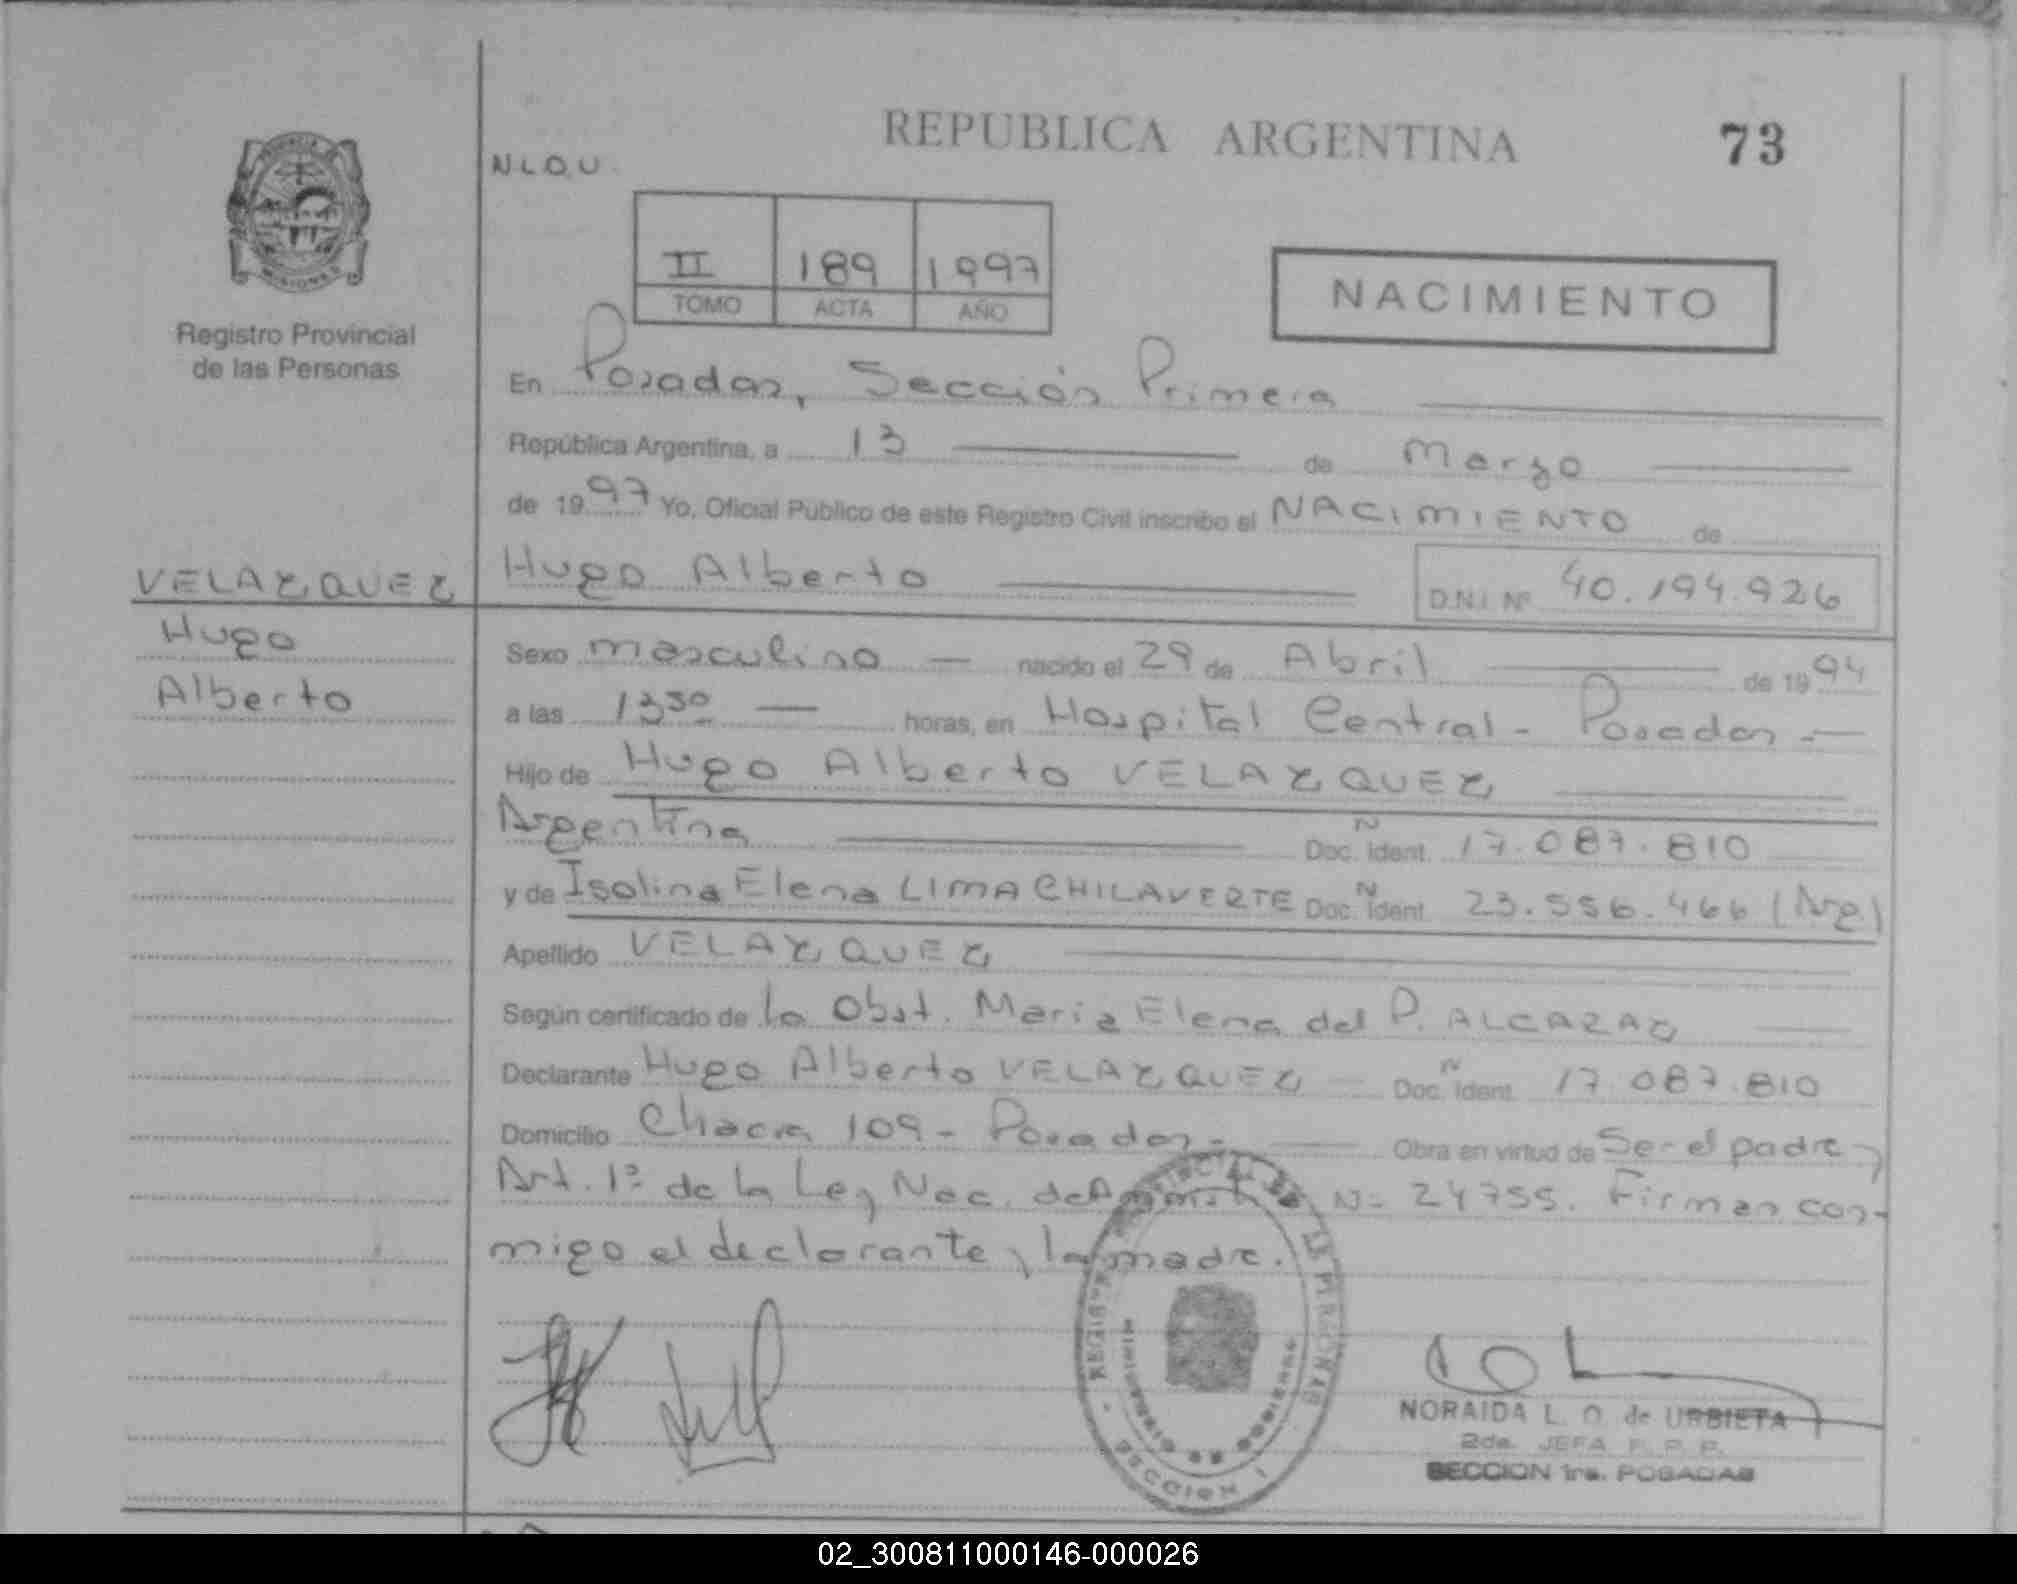 REPUBLICA ARGENTINA
73
N.L.O.U.
II 189 1997
TOMO ACTA AÑO
NACIMIENTO
PROVINCIA
MISIONES
Registro Provincial
de las Personas
En Posadas, Sección Primera
República Argentina, a 13 de Marzo
de 1997 Yo, Oficial Público de este Registro Civil inscribo el NACIMIENTO de
Hugo Alberto
D.N.I. Nº 40.194.926
VELAZQUEZ
Hugo
Alberto
Sexo masculino nacido el 29 de Abril de 1994
a las 13³⁰ horas, en Hospital Central - Posadas.-
Hijo de Hugo Alberto VELAZQUEZ
Argentina Doc. Ident. N 17.087.810
y de Isolina Elena LIMACHILAVERTE Doc. Ident. N 23.556.466 (Arg)
Apellido VELAZQUEZ
Según certificado de la Obst. Maria Elena del P. ALCARAZ
Declarante Hugo Alberto VELAZQUEZ Doc. Ident. N 17.087.810
Domicilio Chacra 109 - Posadas.- Obra en virtud de Ser el padre y
Art. 1º de la Ley Nac. de N= 24755. Firman con-
migo el declarante y la madre.
SECCION I
NORAIDA L. O. de URBIETA
2da. JEFA R. P. P.
SECCION 1ra. POSADAS
02_300811000146-000026